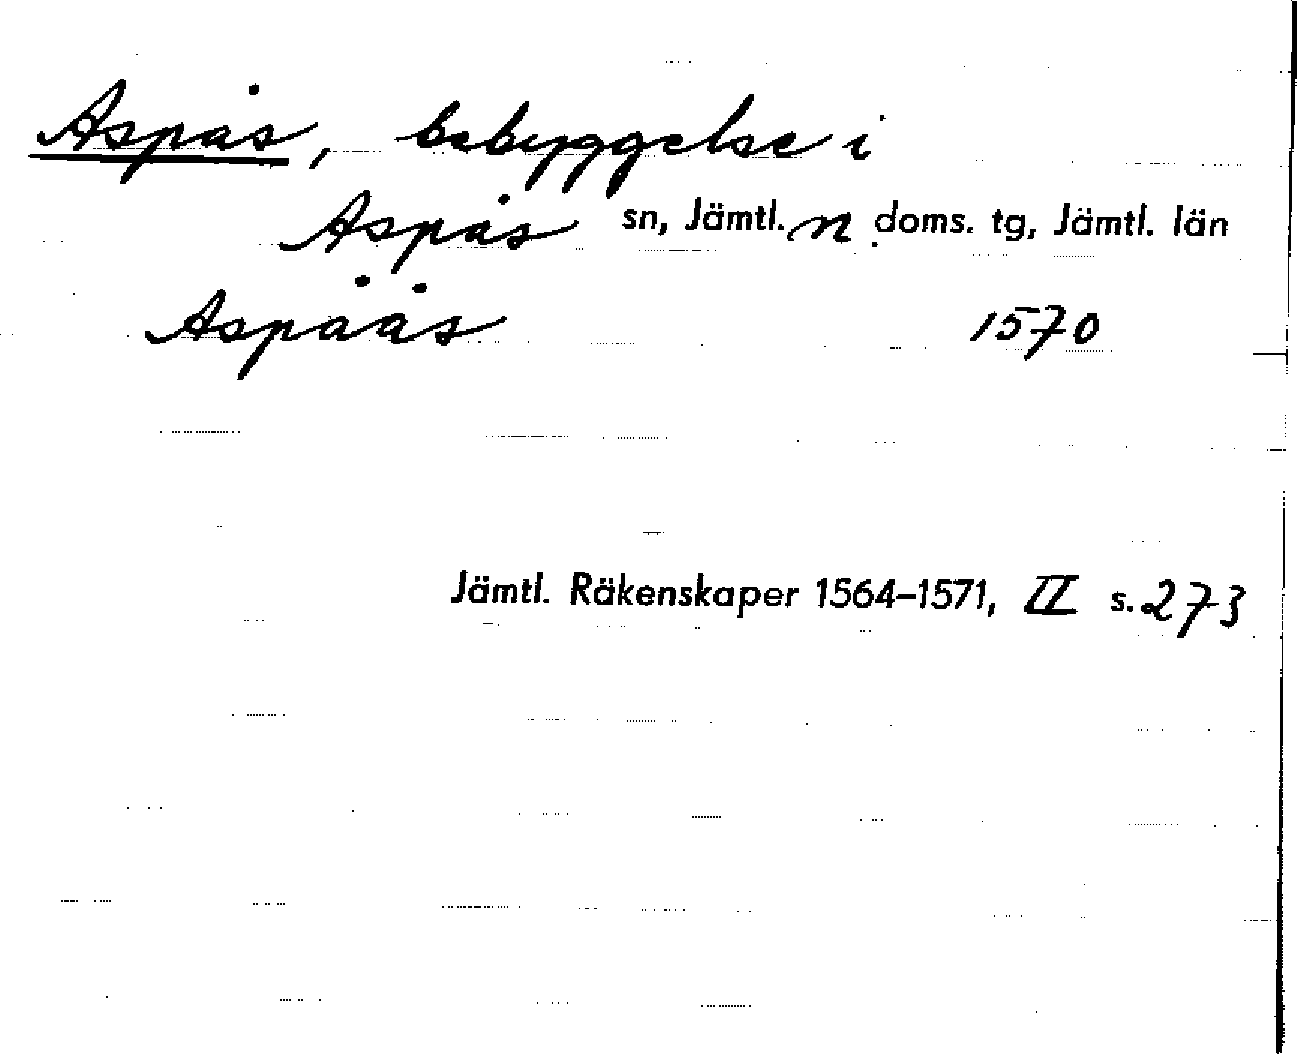 Aspås, bebyggelse i
Aspås sn, Jämtl. n. doms. tg, Jämtl. län
Aspåås 1570
Jämtl. Räkenskaper 1564-1571, II s. 273